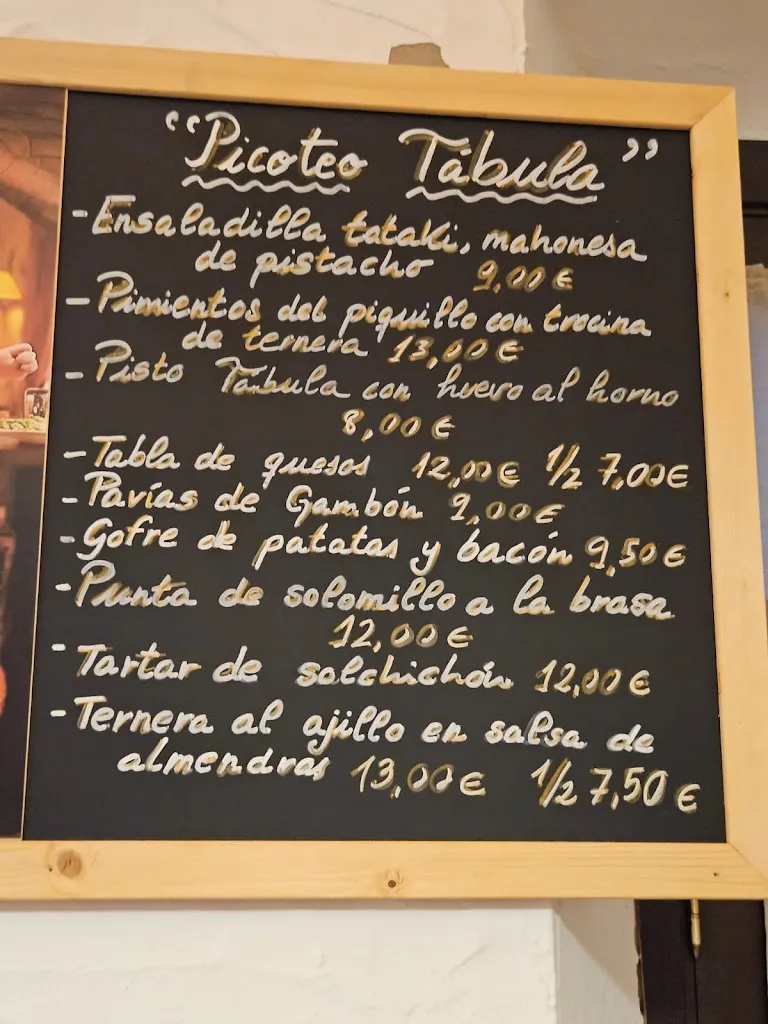 "Picoteo Tábula"
- Ensaladilla tataki, mahonesa
de pistacho 9,00 €
- Pimientos del piquillo con trocina
de ternera 13,00 €
- Pisto Tábula con huevo al horno
8,00 €
- Tabla de quesos 12,00 € 1/2 7,00 €
- Pavías de Gambón 9,00 €
- Gofre de patatas y bacón 9,50 €
- Punta de solomillo a la brasa
12,00 €
- Tartar de salchichón 12,00 €
- Ternera al ajillo en salsa de
almendras 13,00 € 1/2 7,50 €